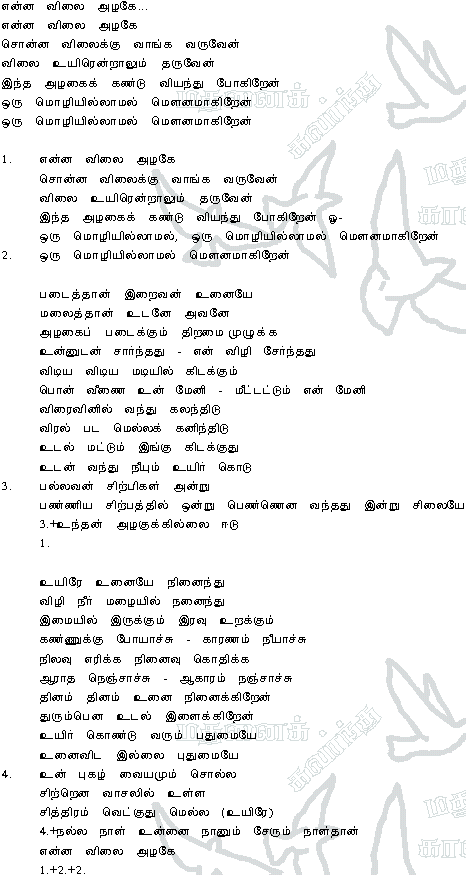 என்ன விலை அழகே...
என்ன விலை அழகே
சொன்ன விலைக்கு வாங்க வருவேன்
விலை உயிரென்றாலும் தருவேன்
இந்த அழகைக் கண்டு வியந்து போகிறேன்
ஒரு மொழியில்லாமல் மௌனமாகிறேன்
ஒரு மொழியில்லாமல் மௌனமாகிறேன்
1. என்ன விலை அழகே
சொன்ன விலைக்கு வாங்க வருவேன்
விலை உயிரென்றாலும் தருவேன்
இந்த அழகைக் கண்டு வியந்து போகிறேன் ஓ-
ஒரு மொழியில்லாமல், ஒரு மொழியில்லாமல் மௌனமாகிறேன்
2. ஒரு மொழியில்லாமல் மௌனமாகிறேன்
படைத்தான் இறைவன் உனையே
மலைத்தான் உடனே அவனே
அழகைப் படைக்கும் திறமை முழுக்க
உன்னுடன் சார்ந்தது - என் விழி சேர்ந்தது
விடிய விடிய மடியில் கிடக்கும்
பொன் வீணை உன் மேனி - மீட்டட்டும் என் மேனி
விரைவினில் வந்து கலந்திடு
விரல் பட மெல்லக் கனிந்திடு
உடல் மட்டும் இங்கு கிடக்குது
உடன் வந்து நீயும் உயிர் கொடு
3. பல்லவன் சிற்பிகள் அன்று
பண்ணிய சிற்பத்தில் ஒன்று பெண்ணென வந்தது இன்று சிலையே
3.+உந்தன் அழகுக்கில்லை ஈடு
1.
உயிரே உனையே நினைந்து
விழி நீர் மழையில் நனைந்து
இமையில் இருக்கும் இரவு உறக்கும்
கண்ணுக்கு போயாச்சு - காரணம் நீயாச்சு
நிலவு எரிக்க நினைவு கொதிக்க
ஆராத நெஞ்சாச்சு - ஆகாரம் நஞ்சாச்சு
தினம் தினம் உனை நினைக்கிறேன்
துரும்பென உடல் இளைக்கிறேன்
உயிர் கொண்டு வரும் பதுமையே
உனைவிட இல்லை புதுமையே
4. உன் புகழ் வையமும் சொல்ல
சிற்றென வாசலில் உள்ள
சித்திரம் வெட்குது மெல்ல (உயிரே)
4.+நல்ல நாள் உன்னை நானும் சேரும் நாள்தான்
என்ன விலை அழகே
1.+2.+2.